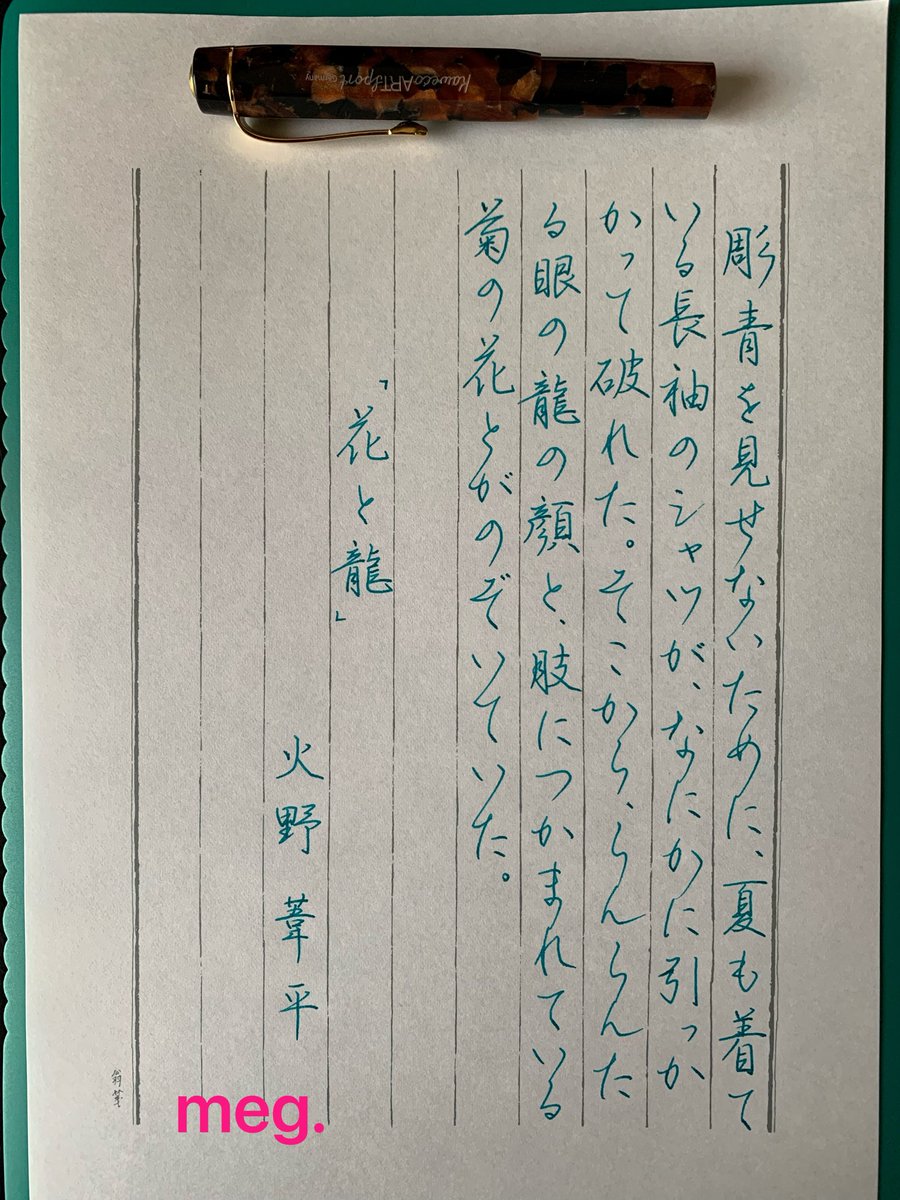 Kaweco ART Sport Germany
彫青を見せないために、夏も着て
いる長袖のシャツが、なにかに引っか
かって破れた。そこから、らんらんた
る眼の龍の顔と、肢につかまれている
菊の花とがのぞいていた。
「花と龍」
火野 葦平
meg.